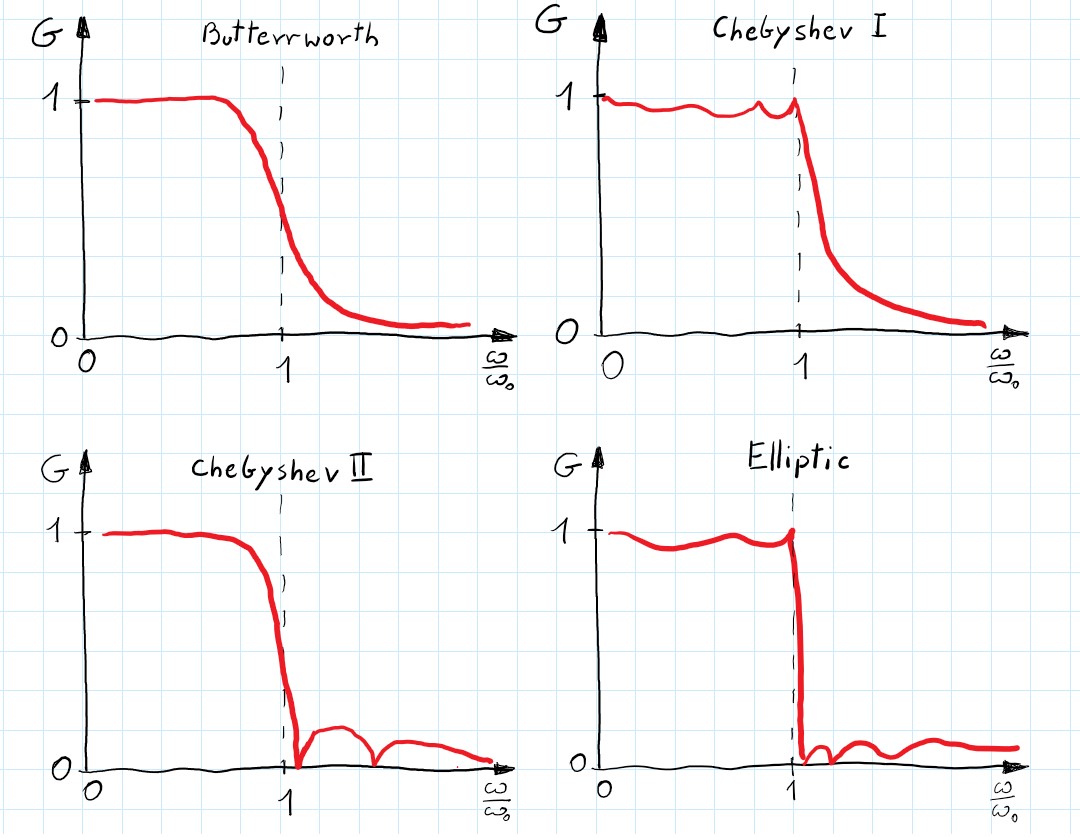 Butterrworth
G
1
0
0
1
ω/ω₀
Chebyshev I
G
1
0
0
1
ω/ω₀
Chebyshev II
G
1
0
0
1
ω/ω₀
Elliptic
G
1
0
0
1
ω/ω₀